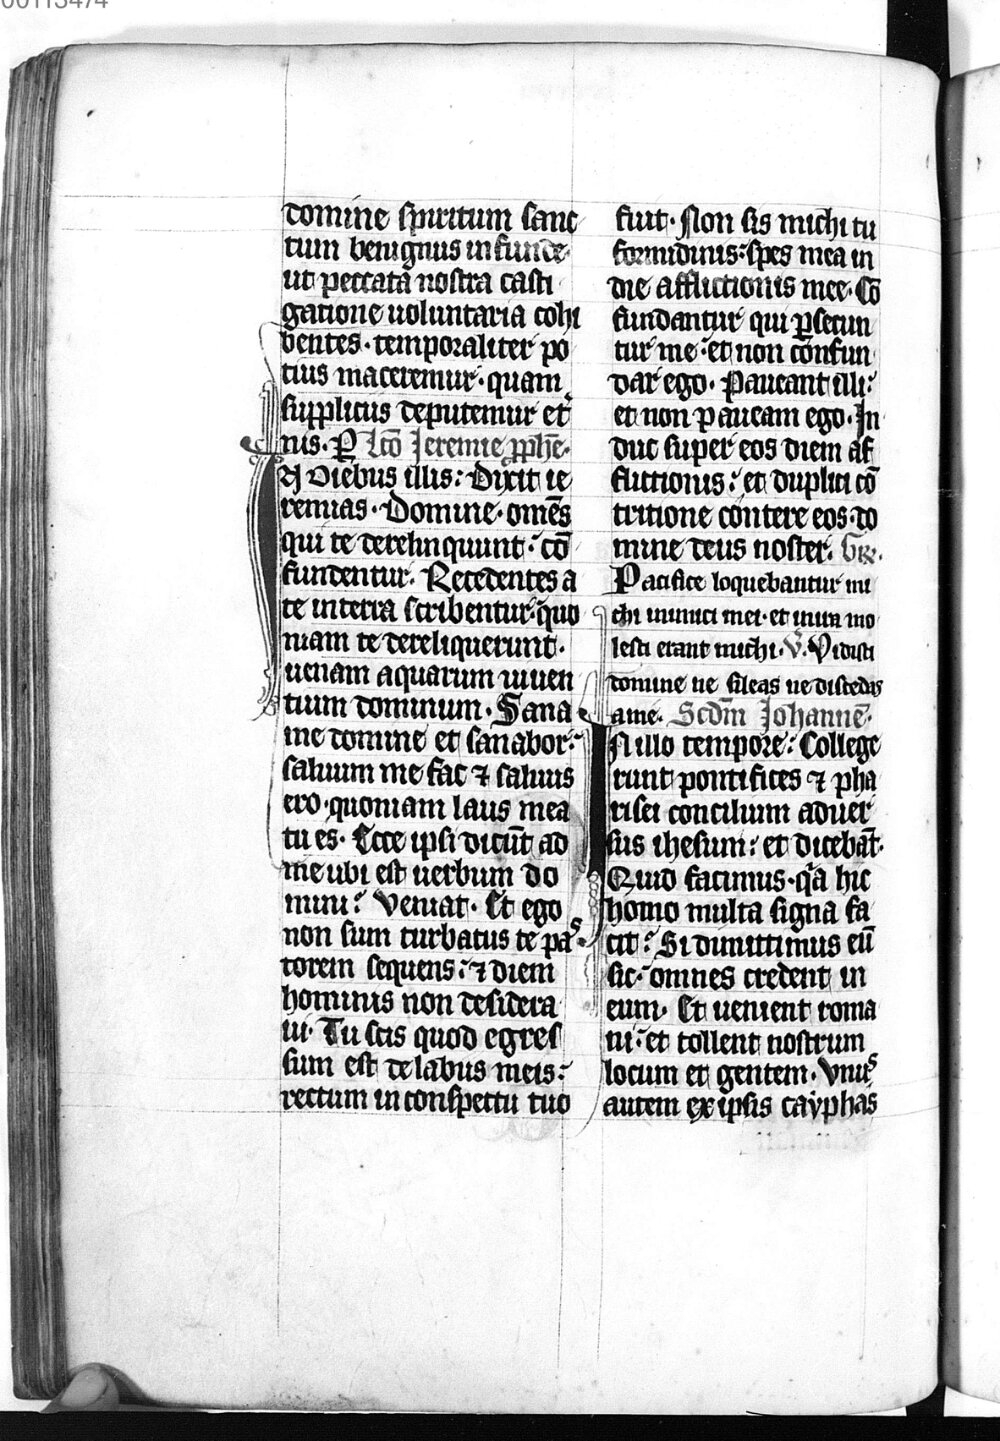 00113474
domine spiritum sanc
tum benignus infunde·
ut peccata nostra casti
gatione uoluntaria cohi
bentes· temporaliter po
tius maceremur· quam
supplicus deputemur et̾
nis· P̲ Lc̄o Jeremie ꝓph̄e·
IN diebus illis: Dixit ie
remias· Domine· om̄es
qui te derelinquunt: cō
fundentur· Recedentes a
te in terra scribentur· quo
niam te dereliquerunt·
uenam aquarum uiuen
tium dominum· Sana
me domine et sanabor:
saluum me fac ⁊ saluus
ero· quoniam laus mea
tu es· Ecce ipsi dicūt ad
me ubi est uerbum do
mini? Veniat· Et ego
non sum turbatus te pas
torem sequens: ⁊ diem
hominis non desidera
ui· Tu scis quod egres
sum est de labiis meis:
rectum in conspectu tuo
fuit· Non sis michi tu
formidinis: spes mea in
die afflictionis mee· Cō
fundantur qui ꝑsecun
tur me: et non confun
dar ego· Paueant illi:
et non paueam ego· In
duc super eos diem af
flictionis: et duplici cō
tritione contere eos· do
mine deus noster· Gr̄·
Pacifice loquebantur mi
chi inimici mei· et in ira mo
lesti erant michi· V̄· Vidisti
domine ne sileas ne discedas
a me· Scdm̄ Johannē·
IN illo tempore: College
runt pontifices ⁊ pha
risei concilium aduer
sus ihesum: et dicebāt·
Quid facimus· qͣa hic
homo multa signa fa
cit? Si dimittimus eū
sic: omnes credent in
eum· Et uenient roma
ni: et tollent nostrum
locum et gentem· Vnus
autem ex ipsis cayphas